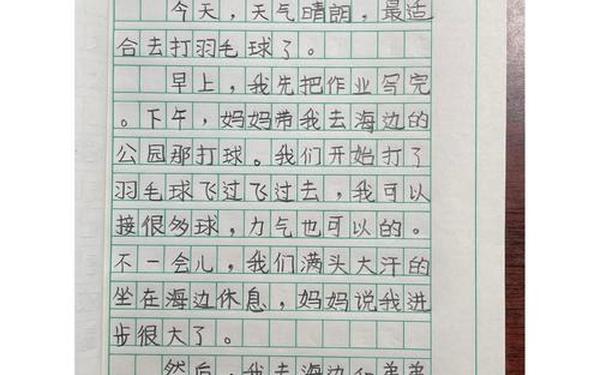 今天，天气晴朗，最适
合去打羽毛球了。
早上，我先把作业写完
。下午，妈妈带我去海边的
公园那打球。我们开始打了
羽毛球飞过飞过去，我可以
接很多球，力气也可以的。
不一会儿，我们满头大汗的
坐在海边休息，妈妈说我进
步很大了。
然后，我去海边和弟弟